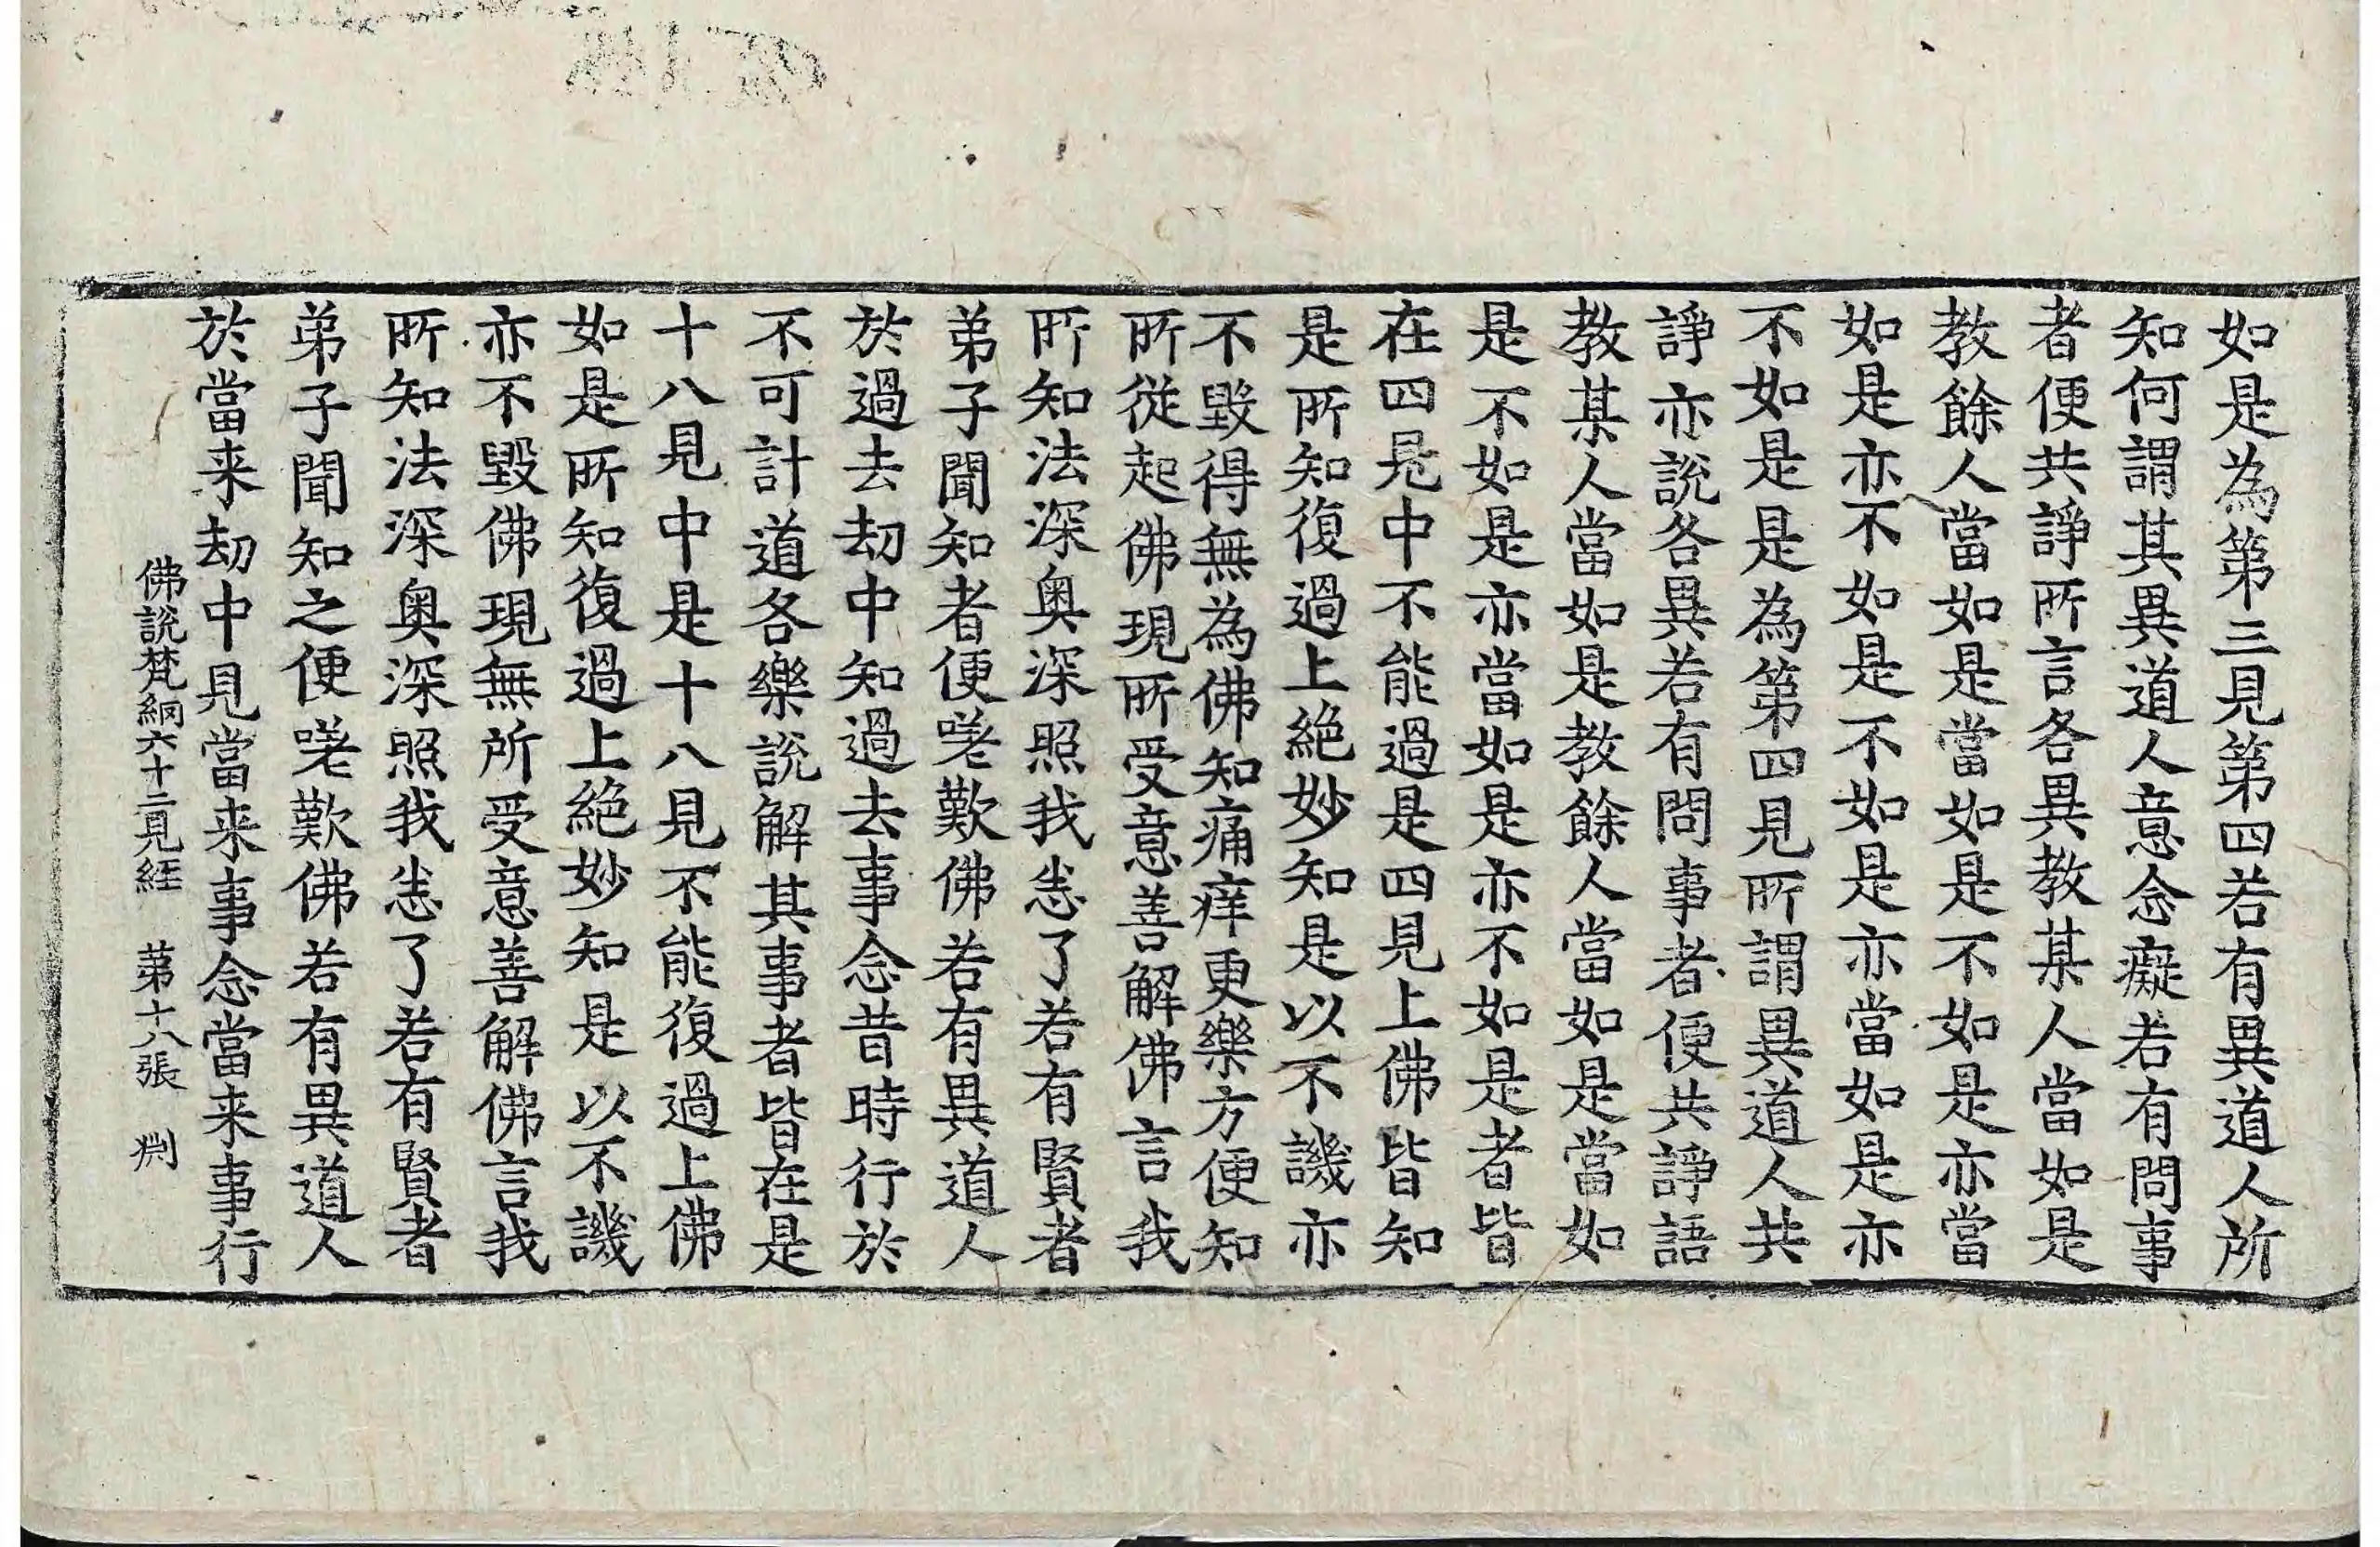 如是為第三見第四若有異道人所
知何謂其異道人意念癡若有問事
者便共諍所言各異教某人當如是
教餘人當如是當如是不如是亦當
如是亦不如是不如是亦當如是亦
不如是是為第四見所謂異道人共
諍亦說各異若有問事者便共諍語
教某人當如是教餘人當如是當如
是不如是亦當如是亦不如是者皆
在四見中不能過是四見上佛皆知
是所知復過上絕妙知是以不譏亦
不毀得無為佛知痛痒更樂方便知
所從起佛現所受意善解佛言我
所知法深奧深照我悉了若有賢者
弟子聞知者便嗟歎佛若有異道人
於過去劫中知過去事念昔時行於
不可計道各樂說解其事者皆在是
十八見中是十八見不能復過上佛
如是所知復過上絕妙知是以不譏
亦不毀佛現無所受意善解佛言我
所知法深奧深照我悉了若有賢者
弟子聞知之便嗟歎佛若有異道人
於當来劫中見當来事念當来事行
佛說梵網六十二見經 第十八張